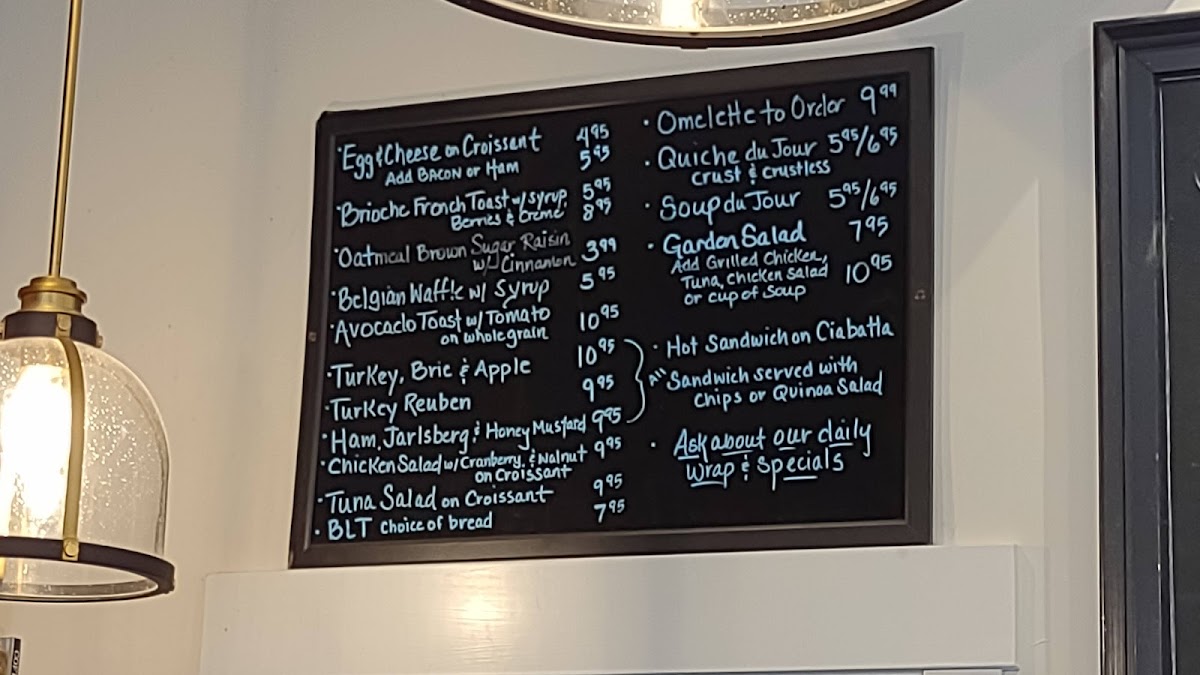 ·Egg & Cheese on Croissant 4.95
Add BACON or Ham 5.95
·Brioche French Toast w/ syrup 5.95
Berries & Creme 8.95
·Oatmeal Brown Sugar Raisin
w/ Cinnamon 3.99
·Belgian Waffle w/ Syrup 5.95
·Avocado Toast w/ Tomato
on whole grain 10.95
·Turkey, Brie & Apple 10.95
·Turkey Reuben 9.95
·Ham, Jarlsberg & Honey Mustard 9.95
·Chicken Salad w/ Cranberry & Walnut 9.95
on Croissant
·Tuna Salad on Croissant 9.95
·BLT Choice of bread 7.95
·Omelette to Order 9.99
·Quiche du Jour 5.95/6.95
Crust & Crustless
·Soup du Jour 5.95/6.95
·Garden Salad 7.95
Add Grilled Chicken,
Tuna, Chicken Salad 10.95
or cup of Soup
·Hot Sandwich on Ciabatta
All Sandwich served with
chips or Quinoa Salad
·Ask about our daily
Wrap & Specials